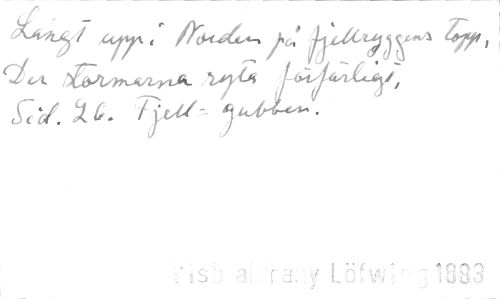 Långt upp i Norden på fjellryggens topp,
Der stormarna ryta förfärligt,
Sid. 26. Fjell-gubben.
Löfwing 1883